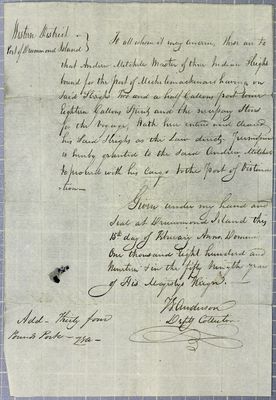 Western District
Port of Drummond Island
To all whom it may concern, These are to
that Andrew Mitchell Master of three Indian Sleighs
bound for the port of Michilimackinac having on
said Sleighs Two and a half Gallons port wine
Eighteen Gallons Spirits and the necessary Stores
for the Voyage, Hath here entered and cleared
his said Sleighs as the Law directs Permission
is hereby granted to the said Andrew Mitchell
to proceed with his cargo to the Port of Destina
tion
Given under my hand and
Seal at Drummond Island this
15th day of February Anno Domini
One thousand eight hundred and
Nineteen & in the fifty ninth year
of His Majestys Reign.
Anderson
Depty Collector
Add - Thirty four
Pounds Pork